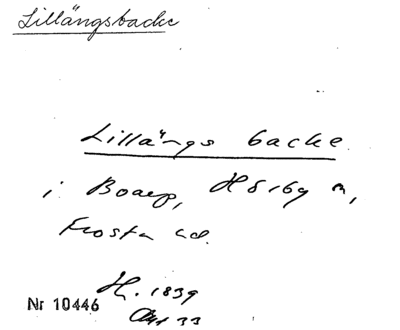 Lillängsbacke
Lillängs backe
i Boarp, Hörby sn,
Frosta hd.
H. 1839
Nr 10446
33